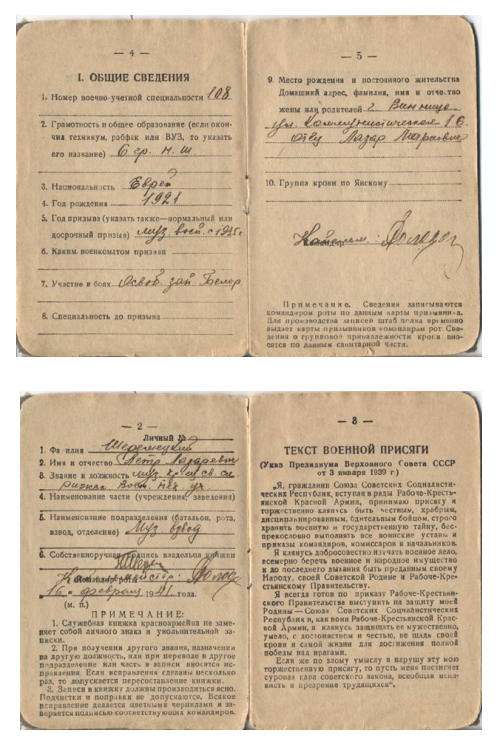 — 4 —
I. ОБЩИЕ СВЕДЕНИЯ
1. Номер военно-учетной специальности 108
2. Грамотность и общее образование (если окон-
чил техникум, рабфак или ВУЗ, то указать
его название) 6 гр. н. ш
3. Национальность Еврей
4. Год рождения 1921
5. Год призыва (указать также—нормальный или
досрочный призыв) муз. восп. с
6. Каким военкоматом призван
7. Участие в боях Освоб. зап. Белор
8. Специальность до призыва
— 5 —
9. Место рождения и постоянного жительства
Домашний адрес, фамилия, имя и отчество
жены или родителей г. Винница
ул. Коммунистическая
отец Лазар
10. Группа крови по Янскому
Примечание. Сведения записываются
командиром роты по данным карты призывника.
Для производства записей штаб полка временно
выдает карты призывников командирам рот. Све-
дения о групповой принадлежности крови вно-
сятся по данным санитарной части.
— 2 —
Личный №
1. Фамилия
2. Имя и отчество Петр Лазаревич
3. Звание и должность муз.
4. Наименование части (учреждения, заведения)
5. Наименование подразделения (батальон, рота,
взвод, отделение) Муз взвод
6. Собственноручная подпись владельца книжки
16 февраля 1941 года.
(м. п.)
ПРИМЕЧАНИЕ:
1. Служебная книжка красноармейца не заме-
няет собой личного знака и увольнительной за-
писки.
2. При получении другого звания, назначении
на другую должность, или при переводе в другое
подразделение или часть в записи вносятся ис-
правления. Если исправления сделаны несколько
раз, то допускается пересоставление книжки.
3. Записи в книжку должны производиться ясно.
Подчистки и поправки не допускаются. Всякое
исправление делается цветными чернилами и за-
веряется подписью соответствующих командиров.
— 3 —
ТЕКСТ ВОЕННОЙ ПРИСЯГИ
(Указ Президиума Верховного Совета СССР
от 3 января 1939 г.)
„Я, гражданин Союза Советских Социалисти-
ческих Республик, вступая в ряды Рабоче-Кресть-
янской Красной Армии, принимаю присягу и
торжественно клянусь быть честным, храбрым,
дисциплинированным, бдительным бойцом, строго
хранить военную и государственную тайну, бес-
прекословно выполнять все воинские уставы и
приказы командиров, комиссаров и начальников.
Я клянусь добросовестно изучать военное дело,
всемерно беречь военное и народное имущество
и до последнего дыхания быть преданным своему
Народу, своей Советской Родине и Рабоче-Кре-
стьянскому Правительству.
Я всегда готов по приказу Рабоче-Крестьян-
ского Правительства выступить на защиту моей
Родины — Союза Советских Социалистических
Республик и, как воин Рабоче-Крестьянской Крас-
ной Армии, я клянусь защищать ее мужественно,
умело, с достоинством и честью, не щадя своей
крови и самой жизни для достижения полной
победы над врагами.
Если же по злому умыслу я нарушу эту мою
торжественную присягу, то пусть меня постигнет
суровая кара советского закона, всеобщая нена-
висть и презрение трудящихся“.